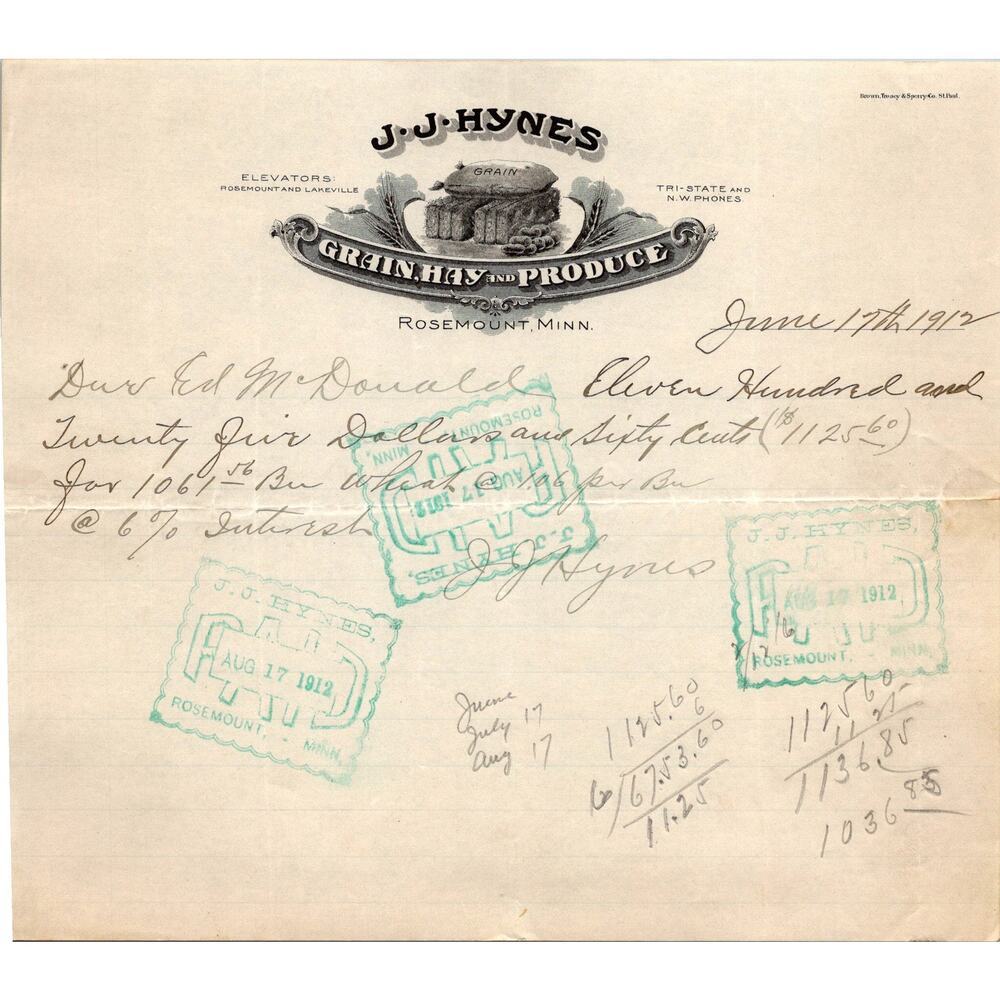 Brown, Treacy & Sperry Co. St. Paul.
J. J. HYNES
GRAIN
ELEVATORS:
ROSEMOUNT AND LAKEVILLE
TRI-STATE AND
N.W. PHONES.
GRAIN, HAY AND PRODUCE
ROSEMOUNT, MINN.
June 17th 1912
Due Ed McDonald Eleven Hundred and
Twenty Five Dollars and Sixty Cents ($1125 60)
For 1061 56 Bu Wheat @ 106 per Bu
@ 6% Interest
J J Hynes
J. J. HYNES,
PAID
AUG 17 1912
ROSEMOUNT, MINN.
J. J. HYNES,
PAID
AUG 17 1912
ROSEMOUNT, - MINN.
J. J. HYNES,
PAID
AUG 17 1912
ROSEMOUNT, - MINN.
June
July 17
Aug 17
1125.60
6
6/67.53.60
11.25
1125 60
11 25
1136.85
1036 85